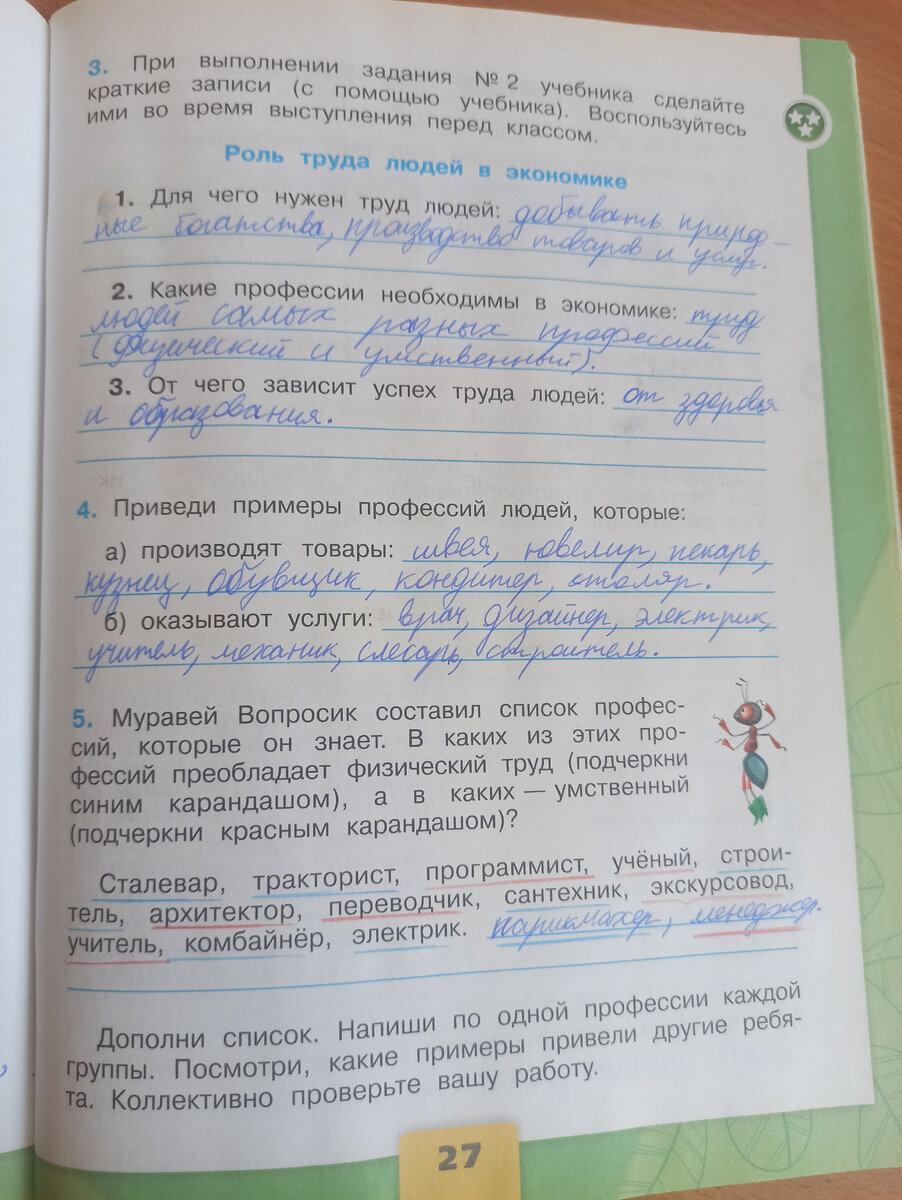 3. При выполнении задания № 2 учебника сделайте
краткие записи (с помощью учебника). Воспользуйтесь
ими во время выступления перед классом.
Роль труда людей в экономике
1. Для чего нужен труд людей: добывать природ –
ные богатства, производство товаров и услуг.
2. Какие профессии необходимы в экономике: труд
людей самых разных профессий
(физический и умственный).
3. От чего зависит успех труда людей: от здоровья
и образования.
4. Приведи примеры профессий людей, которые:
а) производят товары: швея, ювелир, пекарь,
кузнец, обувщик, кондитер, столяр.
б) оказывают услуги: врач, дизайнер, электрик,
учитель, механик, слесарь, строитель.
5. Муравей Вопросик составил список профес-
сий, которые он знает. В каких из этих про-
фессий преобладает физический труд (подчеркни
синим карандашом), а в каких — умственный
(подчеркни красным карандашом)?
Сталевар, тракторист, программист, учёный, строи-
тель, архитектор, переводчик, сантехник, экскурсовод,
учитель, комбайнёр, электрик. парикмахер, менеджер.
Дополни список. Напиши по одной профессии каждой
группы. Посмотри, какие примеры привели другие ребя-
та. Коллективно проверьте вашу работу.
27